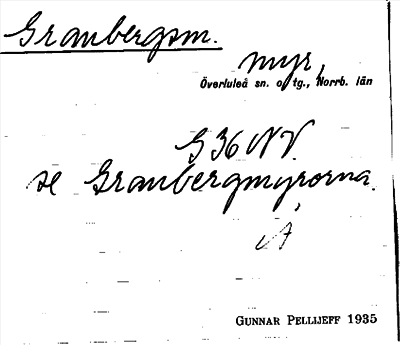 Granbergsm.
myr,
Överluleå sn. o. tg., Norrb. län
G 36 NV.
se Granbergmyrorna.
GUNNAR PELLIJEFF 1935